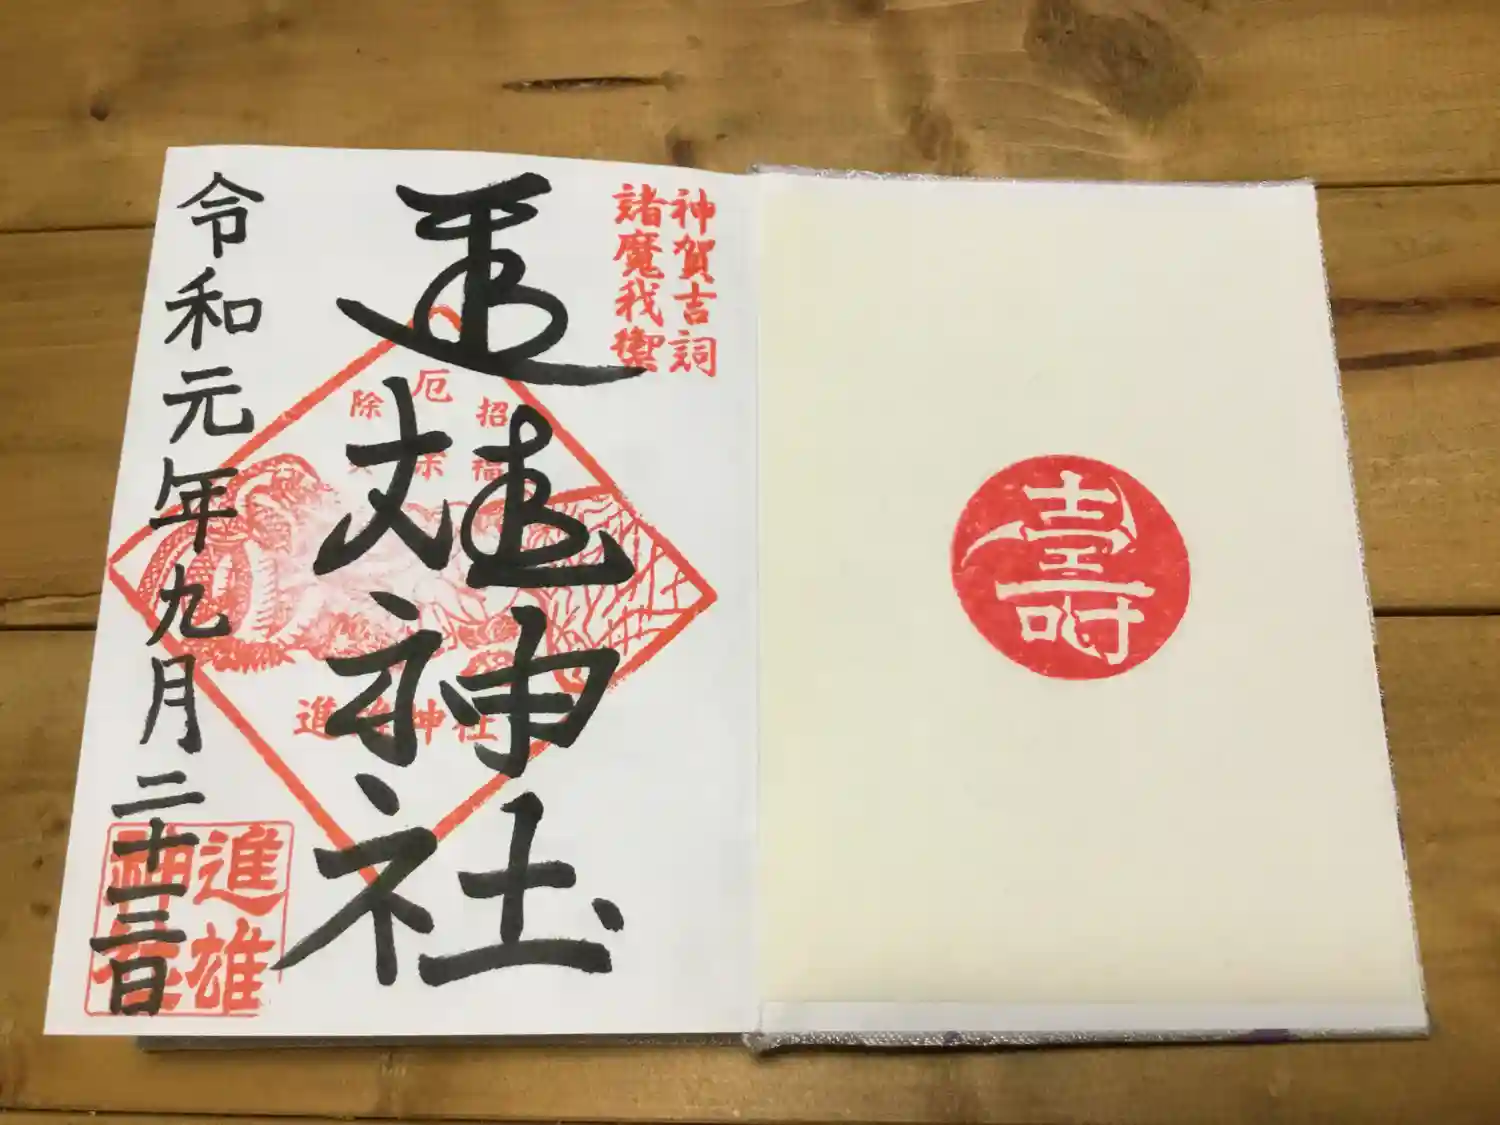 壽
神賀吉詞
諸魔我禦
進雄神社
厄除招福
進雄神社
令和元年九月二十三日
進雄神社